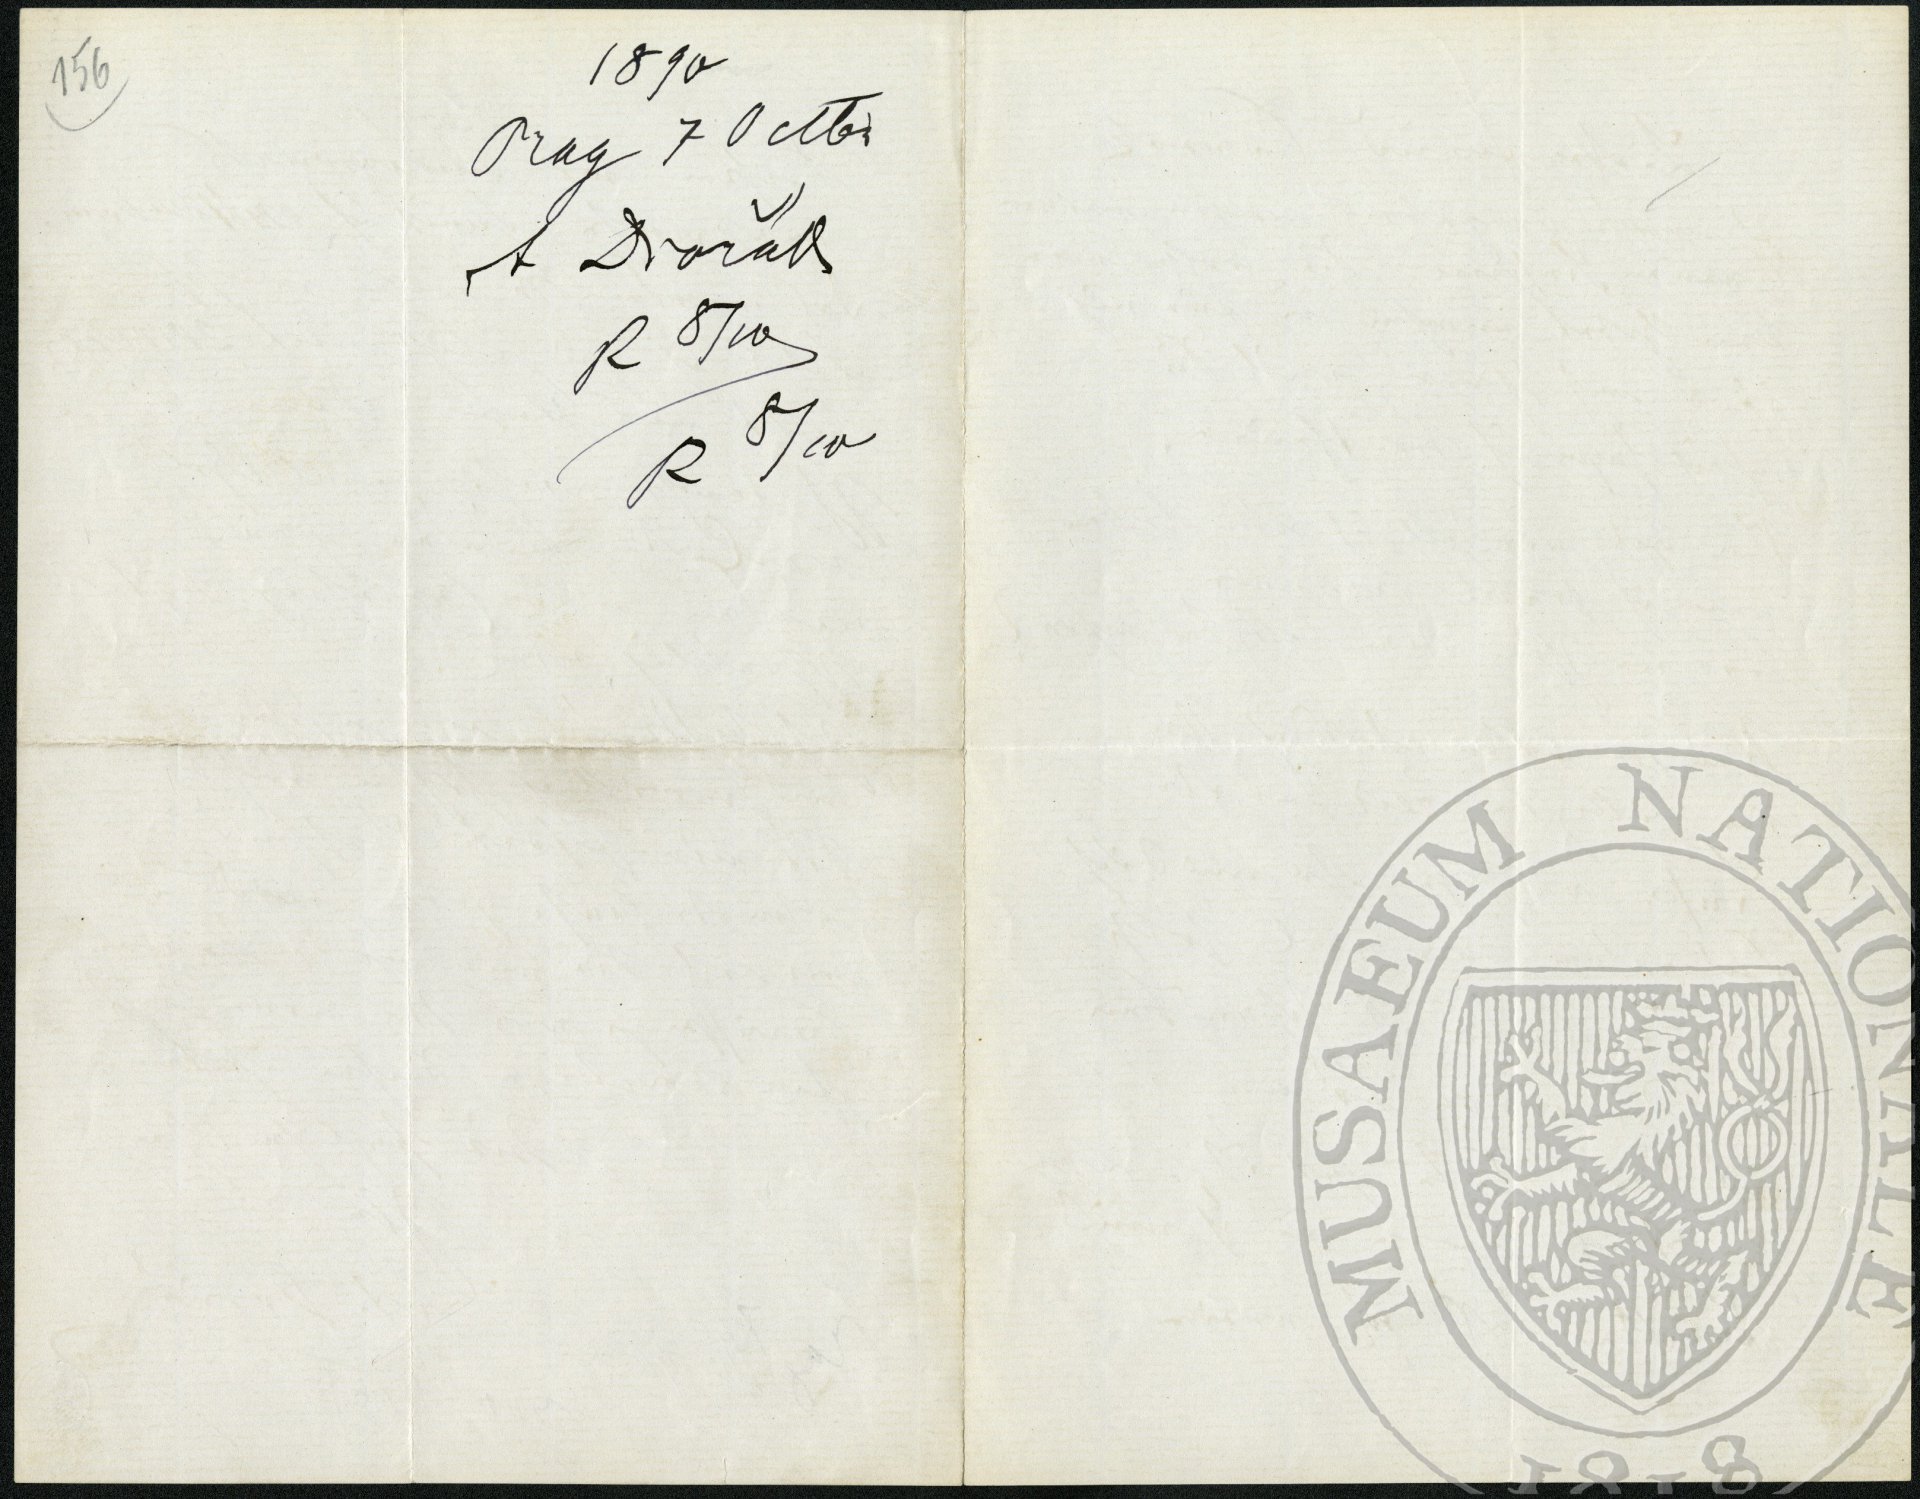 156
1890
Prag 7 Octbr
A Dvořák
R 8/10
R 8/10
MUSAEUM NATIONALE
1818